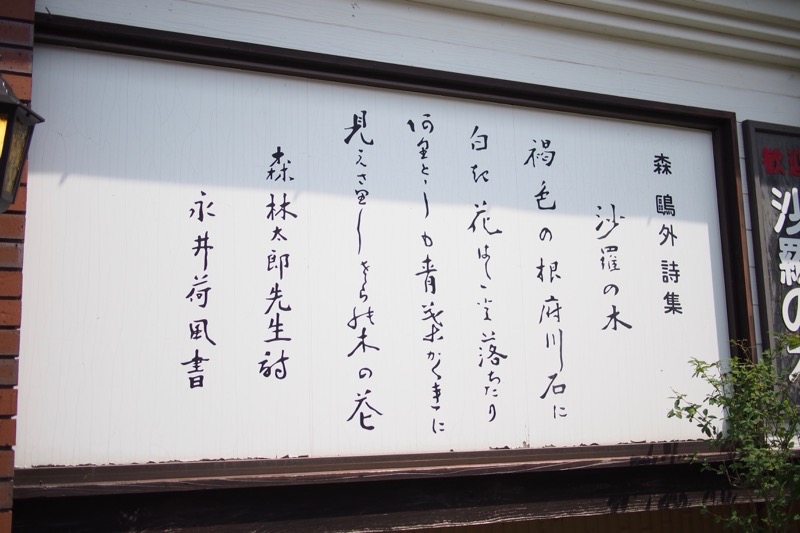 森鷗外詩集
沙羅の木
褐色の根府川石に
白き花はたと落ちたり
ありとしも青葉かくれに
見えさりしさらの木の花
森林太郎先生詩
永井荷風書
沙羅の